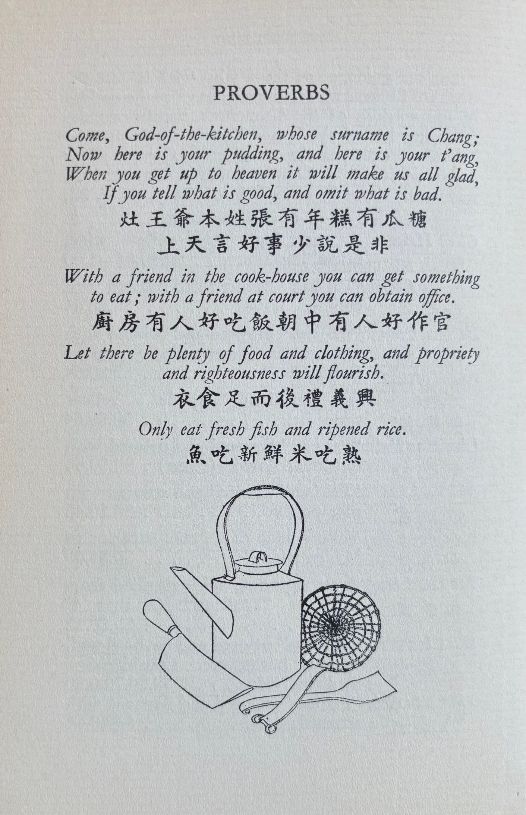 PROVERBS
Come, God-of-the-kitchen, whose surname is Chang;
Now here is your pudding, and here is your t'ang,
When you get up to heaven it will make us all glad,
If you tell what is good, and omit what is bad.
灶王爺本姓張有年糕有瓜糖
上天言好事少說是非
With a friend in the cook-house you can get something
to eat; with a friend at court you can obtain office.
廚房有人好吃飯朝中有人好作官
Let there be plenty of food and clothing, and propriety
and righteousness will flourish.
衣食足而後禮義興
Only eat fresh fish and ripened rice.
魚吃新鮮米吃熟